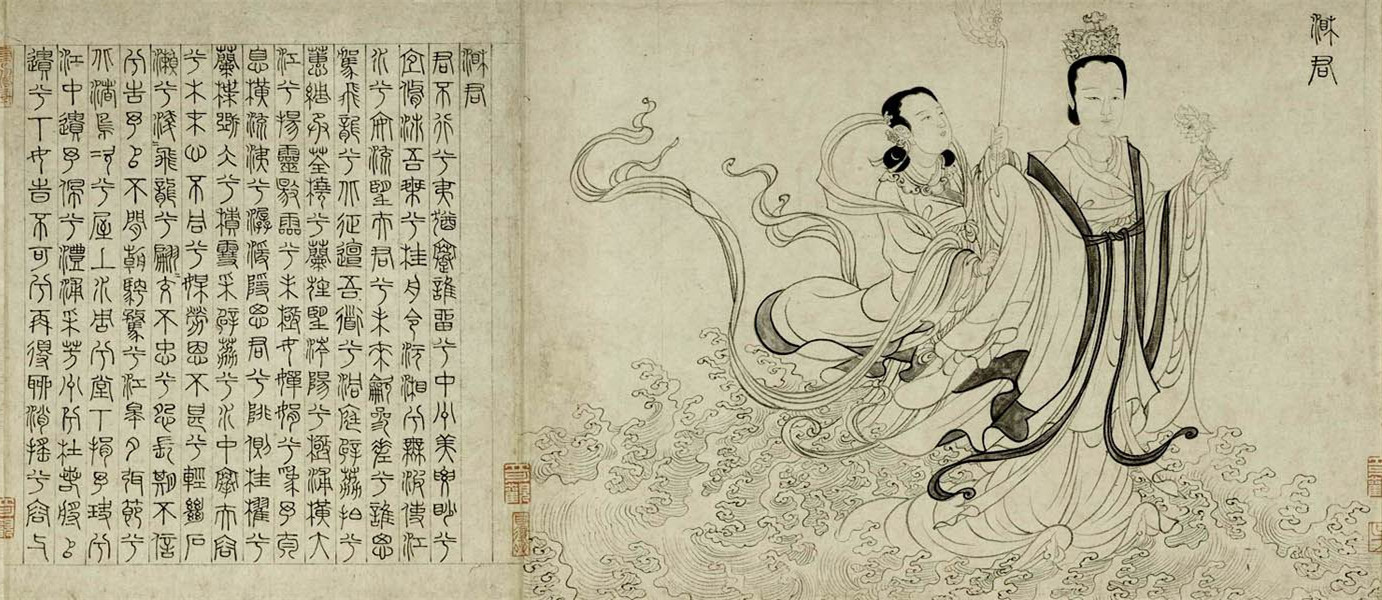 湘君
湘君
君不行兮夷猶蹇誰留兮中州美要眇兮
宜脩沛吾乘兮桂舟令沅湘兮無波使江
水兮安流望夫君兮未來龡參差兮誰思
駕飛龍兮北征邅吾道兮洞庭薜荔拍兮
蕙綢承荃橈兮蘭旌望涔陽兮極浦橫大
江兮揚靈揚靈兮未極女嬋媛兮為予太
息橫流涕兮潺湲隱思君兮陫側桂櫂兮
蘭枻斲冰兮積雪采薜荔兮水中搴芙蓉
兮木末心不同兮媒勞恩不甚兮輕絕石
瀨兮淺〻飛龍兮翩〻交不忠兮怨長期不信
兮告予以不閒朝騁騖兮江皋夕弭節兮
北渚鳥次兮屋上水周兮堂下捐予玦兮
江中遺予佩兮澧浦采芳洲兮杜若將以
遺兮下女時不可兮再得聊逍遙兮容與